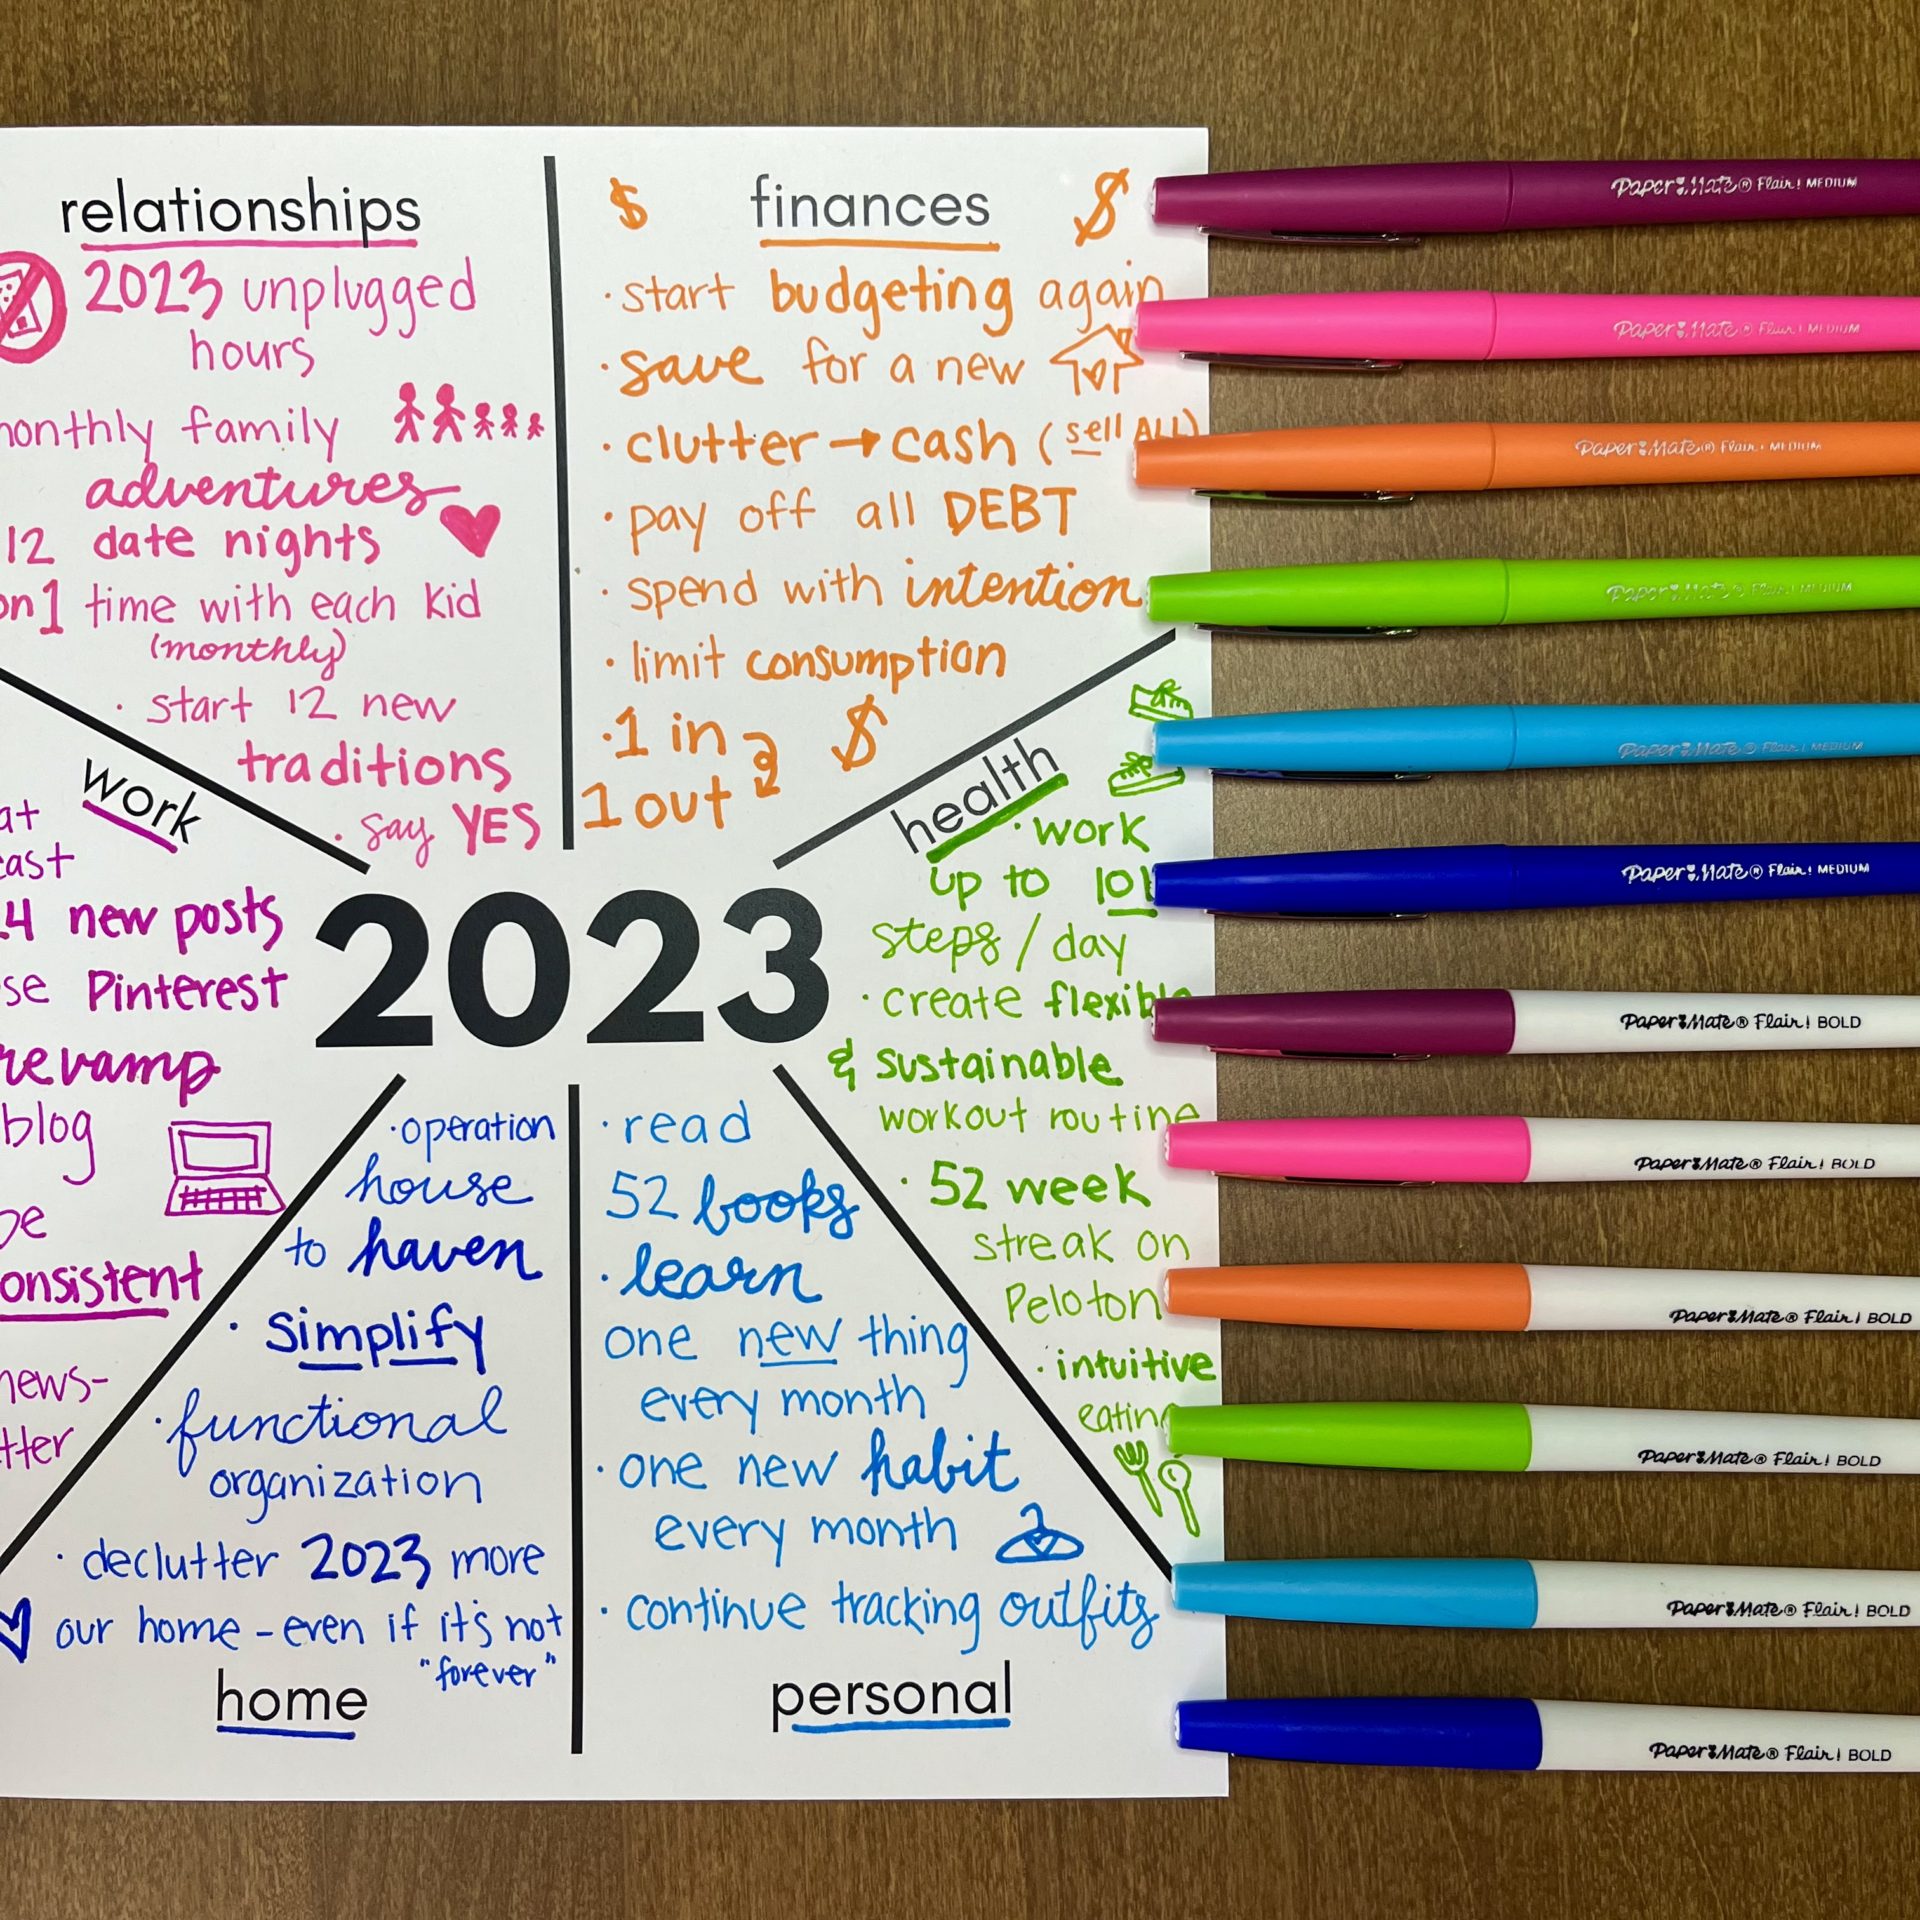 relationships
2023 unplugged
hours
monthly family
adventures
12 date nights
on 1 time with each kid
(monthly)
· start 12 new
traditions
· say YES
$ finances $
· start budgeting again
· save for a new
· clutter → cash (sell ALL)
· pay off all DEBT
· spend with intention
· limit consumption
· 1 in $
1 out
work
new posts
Pinterest
revamp
blog
be
consistent
news-
2023
health
· work
up to 10k
steps / day
· create flexible
& sustainable
workout routine
· 52 week
streak on
Peloton
· intuitive
eating
· operation
house
to haven
· simplify
· functional
organization
· declutter 2023 more
our home - even if it's not
"forever"
home
· read
52 books
· learn
one new thing
every month
· one new habit
every month
· continue tracking outfits
personal
Paper Mate® Flair! MEDIUM
Paper Mate® Flair! MEDIUM
Paper Mate® Flair! MEDIUM
Paper Mate® Flair! MEDIUM
Paper Mate® Flair! MEDIUM
Paper Mate® Flair! MEDIUM
Paper Mate® Flair! BOLD
Paper Mate® Flair! BOLD
Paper Mate® Flair! BOLD
Paper Mate® Flair! BOLD
Paper Mate® Flair! BOLD
Paper Mate® Flair! BOLD